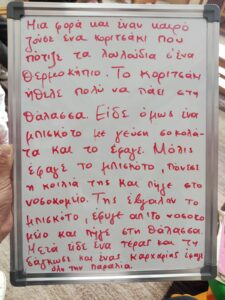 Μια φορά και έναν καιρό
ζούσε ένα κοριτσάκι που
πότιζε τα λουλούδια σ'ένα
θερμοκήπιο. Το κοριτσάκι
ήθελε πολύ να πάει στη
θάλασσα. Είδε όμως ένα
μπισκότο με γεύση σοκολά-
τα και το έφαγε. Μόλις
έφαγε το μπισκότο, πόνεσε
η κοιλιά της και πήγε στο
νοσοκομείο. Της έβγαλαν το
μπισκότο, έφυγε από το νοσοκο-
μείο και πήγε στη θάλασσα.
Μετά είδε ένα τέρας και τη
δάγκωσε και ένας καρχαρίας έφαγε
όλη την παραλία.